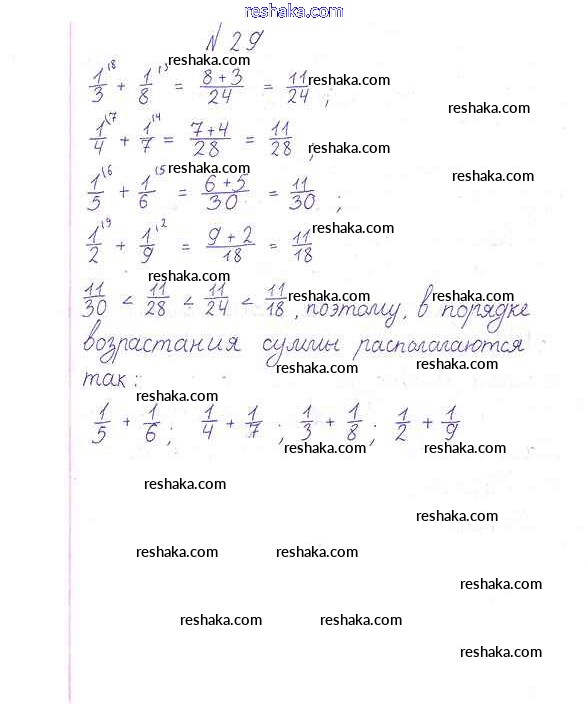 reshaka.com
№ 29
1/3 \8 + 1/8 \3 = (8+3)/24 = 11/24 ; reshaka.com reshaka.com
reshaka.com
1/4 \7 + 1/7 \4 = (7+4)/28 = 11/28 , reshaka.com
reshaka.com reshaka.com
1/5 \6 + 1/6 \5 = (6+5)/30 = 11/30 ;
1/2 \9 + 1/9 \2 = (9+2)/18 = 11/18 reshaka.com
reshaka.com
11/30 < 11/28 < 11/24 < 11/18, поэтому, в порядке reshaka.com reshaka.com
возрастания суммы располагаются
reshaka.com reshaka.com
так:
reshaka.com
1/5 + 1/6 ; 1/4 + 1/7 ; 1/3 + 1/8 ; 1/2 + 1/9
reshaka.com reshaka.com
reshaka.com
reshaka.com
reshaka.com reshaka.com
reshaka.com
reshaka.com reshaka.com
reshaka.com